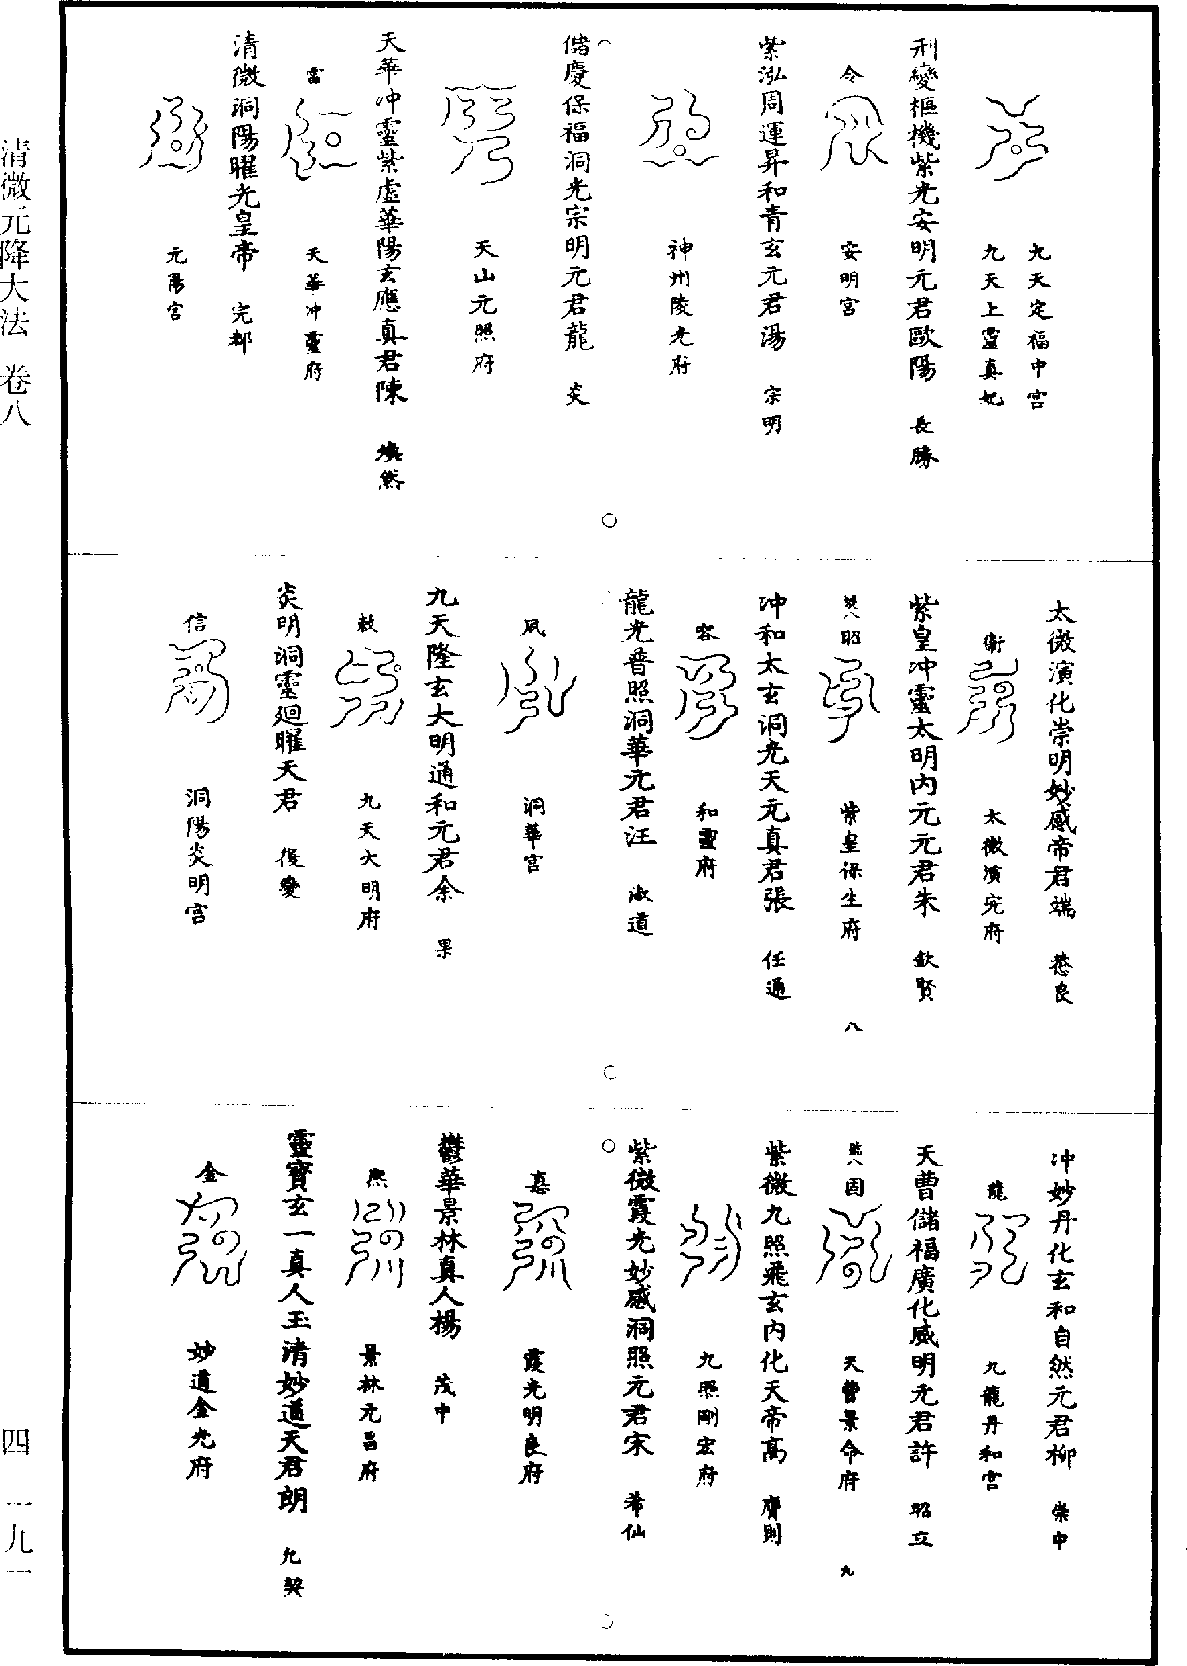 九天定福中宮
九天上靈真妃
刑變樞機紫光安明元君歐陽 長勝
令
安明宮
紫泓周運昇和青玄元君湯 宗明
神州陵光府
儲慶保福洞光宗明元君龍 炎
天山元照府
天華冲靈紫虛華陽玄應真君陳 煥然
雷
天華冲靈府
清微洞陽曜光皇帝 完都
元陽宮
太微演化崇明妙感帝君端 慈良
衛
太微演宪府
紫皇冲靈太明內元元君朱 欽賢
昭
紫皇保生府
八
冲和太玄洞光天元真君張 任通
容
和靈府
龍光普照洞華元君汪 淑道
風
洞華宮
九天隆玄大明通和元君余 果
敕
九天大明府
炎明洞靈廻曜天君 復變
信
洞陽炎明宮
冲妙丹化玄和自然元君柳 崇中
龍
九龍丹和宮
天曹儲福廣化威明元君許 昭立
固
天曹景命府
九
紫微九照飛玄內化天帝高 膺則
九照剛宏府
紫微霞光妙感洞照元君宋 希仙
嘉
霞光明良府
鬱華景林真人楊 茂中
熙
景林元昌府
靈寶玄一真人玉清妙道天君朗 允契
金
妙道金光府
清微元降大法 卷八
四 一九一